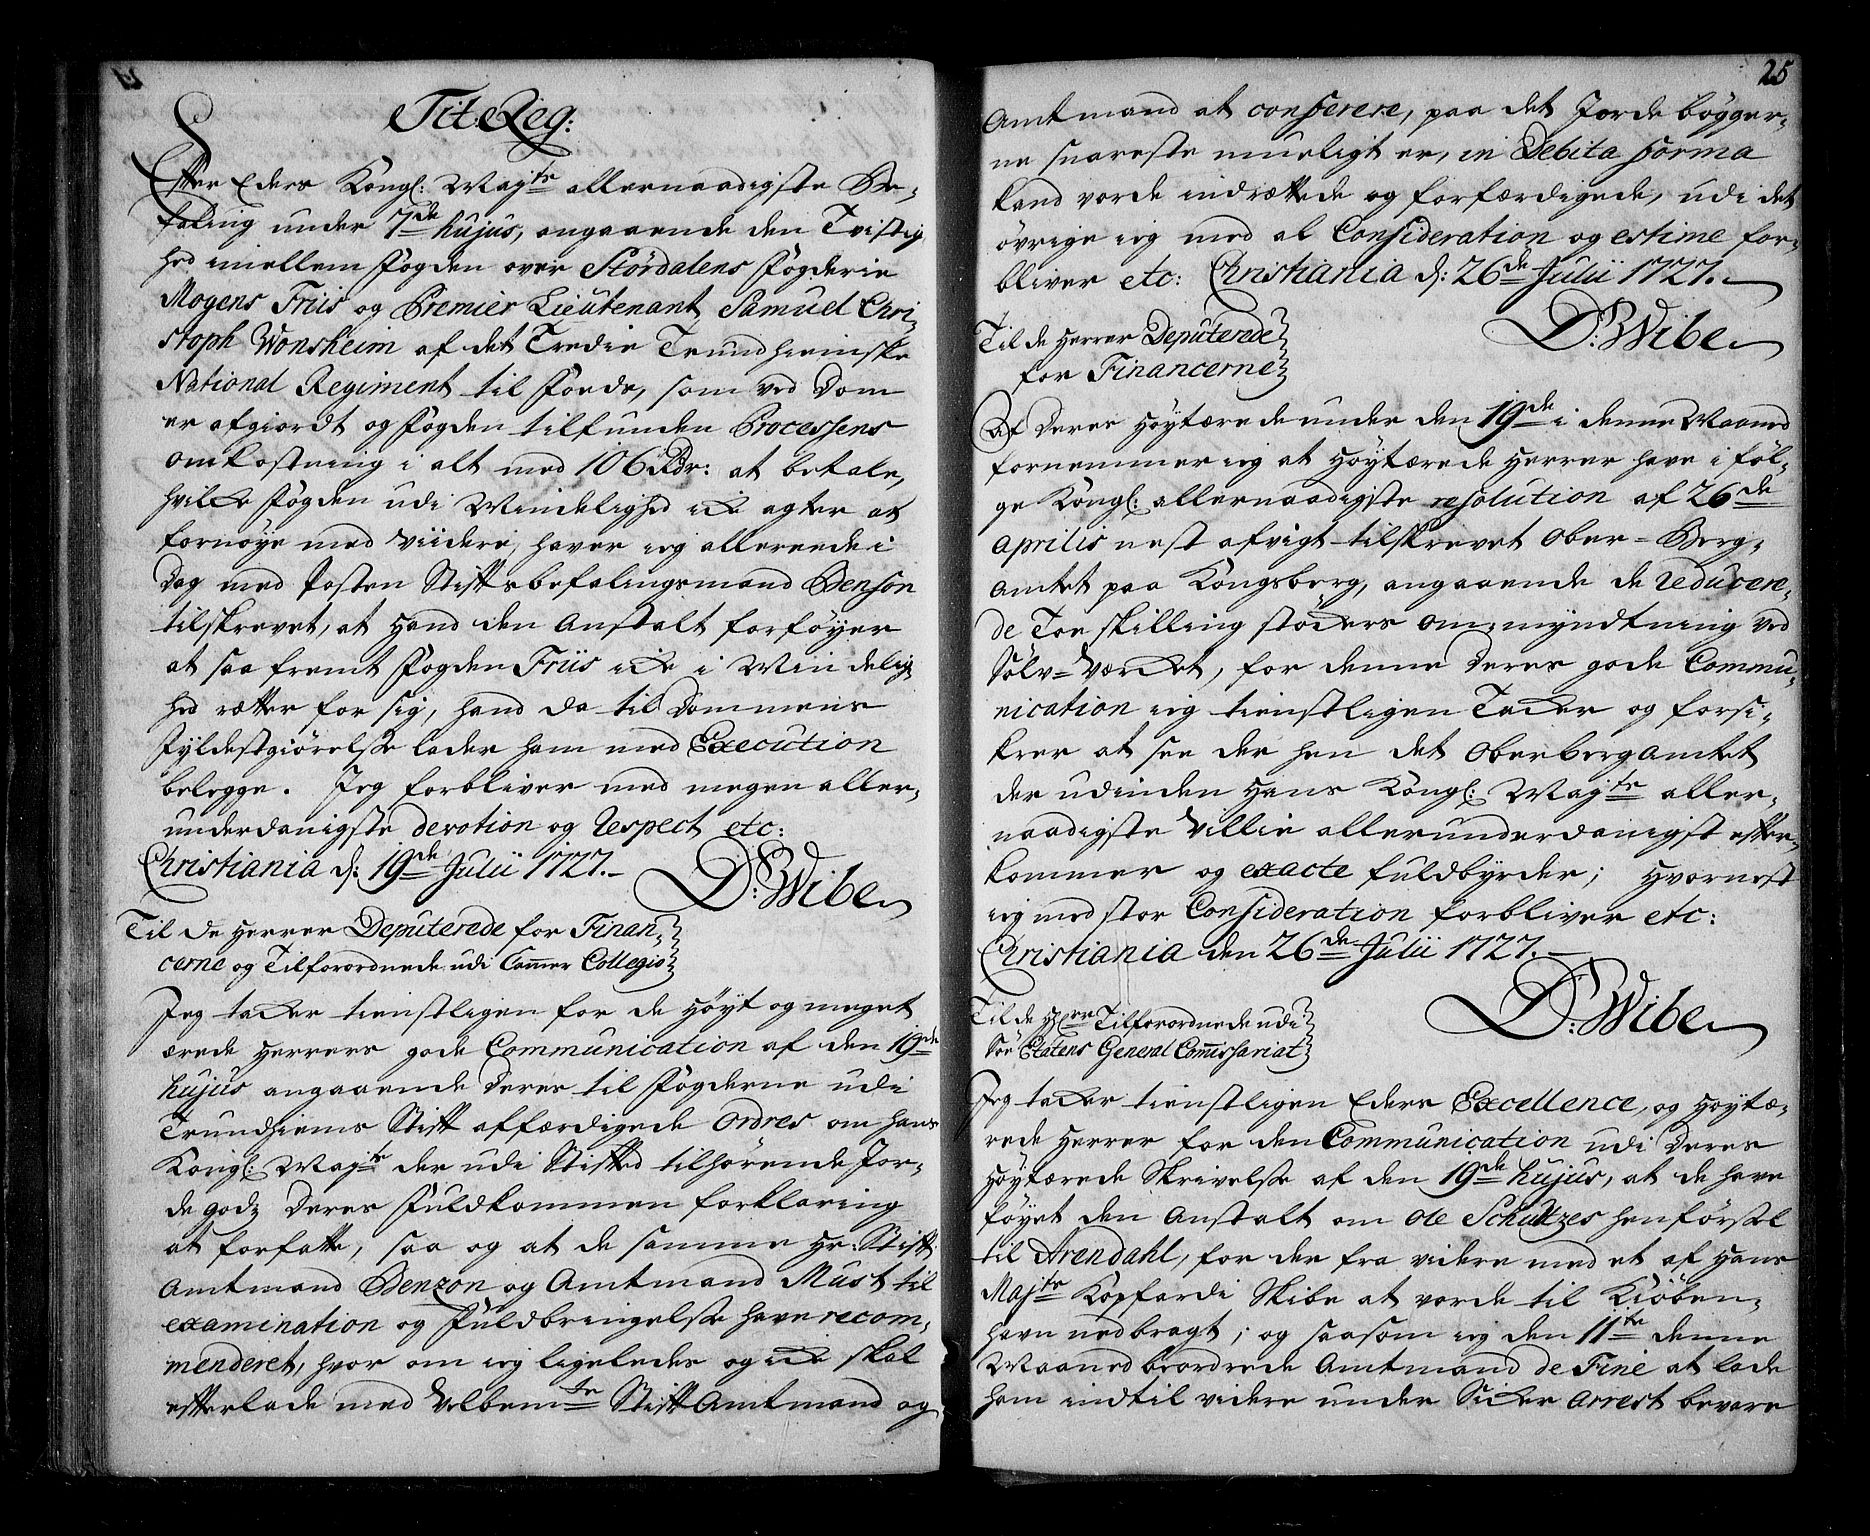 Tit: Reg:
Efter Eders Kongl: Maj.te allernaadigste Be-
faling under 7de hujus, angaaende den Tvistig
hed imellem Fogden over Stördalens Fogderie
Mogens Friis og Premier Lieutenant Samuel Chri-
stoph Wonsheim af det Tredie Trundhiemske
National Regiment til Fods, som ved Dom
er afgiordt og Fogden tilfunden Processens
omkostning i alt med 106 Rdr: at betale,
hvilke Fogden udi Mindelighed icke agter at
fornøye med viidere, haver ieg allereede i
Dag med Posten Stiftsbefalingsmand Benson
tilskrevet, at Hand den Anstalt forføyer
at saa fremt Fogden Friis icke i Mindelig-
hed retter for sig, hand da til Dommens
Fyldestgiørelse lader ham med Execution
belegge. Jeg forbliver med megen aller-
underdanigste devotion og Respect etc:
Christiania d: 19de Julii 1727.
D: Wibe
Til de Herrer Deputerede for Finan-
cerne og Tilforordnede udi Cammer Collegio
Jeg tacker tienstligen for de Høyt og meget
ærede Herrers gode Communication af den 19de
hujus angaaende Deres til Fogderne udi
Trundhiems Stift affærdigede Ordres om hans
Kongl: Maj.te der udi Stifted tilhørende Jor-
de godz Deres Fuldkommen forklaring
at forfatte, saa og at de samme Hr: Stift
Amtmand Benzon og Amtmand Must til
examination og Fuldbringelse have recom-
menderet, hvor om ieg ligeledes og icke skal
efterlade med Velbem.te Stift Amtmand og
25
Amtmand at conferere, paa det Jorde bøgger-
ne snareste mueligt er, in Debita forma
kand vorde indrettede og forfærdigede, udi det
øvrige ieg med al Consideration og estime for-
bliver etc: Christiania d: 26de Julii 1727.
D: Wibe
Til de Herrer Deputerede
for Financerne
Af Deres Høytærede under den 19de i denne Maaned
fornemmer ieg at Høytærede Herrer have i föl-
ge Kongl: allernaadigste resolution af 26de
aprilis nest afvigt tilskrevet Ober-Berg-
Amtet paa Kongsberg, angaaende de reducere-
de Toe skilling støckers om-myndtning ved
Sølv-Værcket, for denne Deres gode Commu-
nication ieg tienstligen Tacker og forsi-
krer at see der hen det Oberbergamtet
der udinden Hans Kongl: Maj.te aller-
naadigste Villie allerunderdanigst efter-
kommer og exacte fuldbyrder; Hvornest
ieg med stor Consideration forbliver etc:
Christiania den 26de Julii 1727.
D: Wibe
Til de Hrer Tilforordnede udi
Søe Etatens General Commissariat
Jeg tacker tienstligen Eders Excellence, og Høytæ-
rede Herrer for den Communication udi Deres
Høytærede Skrivelse af den 19de hujus, at de have
føyet den Anstalt om Ole Schultzes henførsel
til Arendahl, for der fra videre med et af Hans
Maj.te Kopfardi Skibe at vorde til Kiöben-
havn nedbragt; og saasom ieg den 11te denne
Maaned beordrede Amtmand de Finè at lade
ham indtil videre under Sicker Arrest bevare